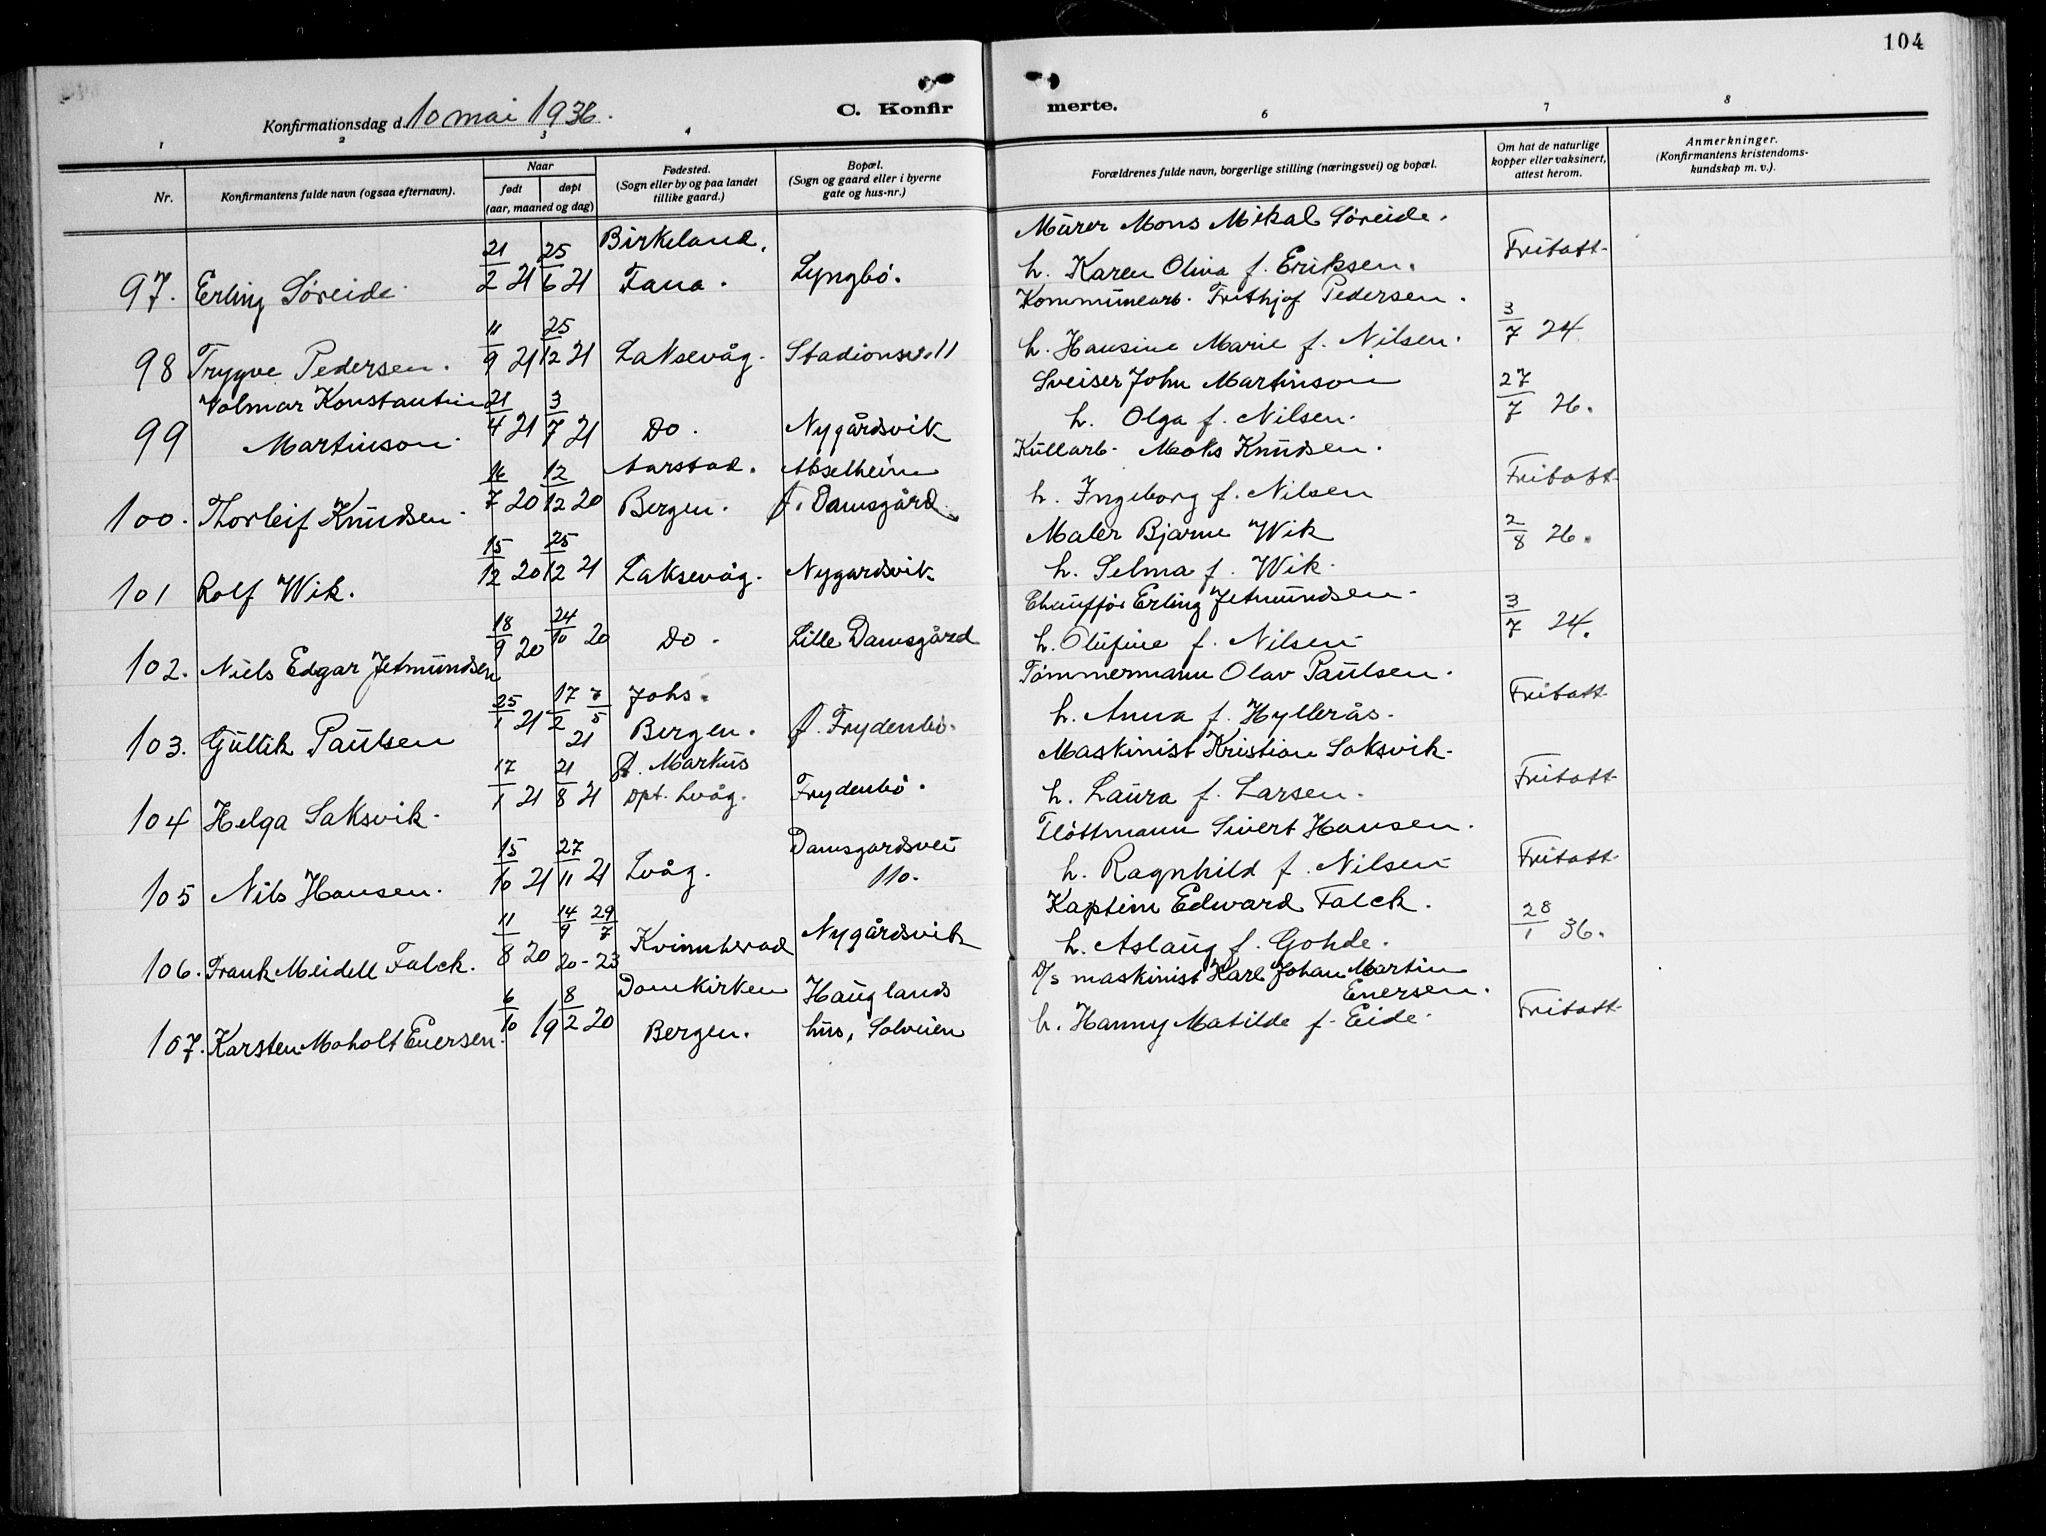 104
Konfirmationsdag d. 10 mai 1936.
C. Konfirmerte.
1 2 3 4 6 7 8
Nr.
Konfirmantens fulde navn (ogsaa efternavn).
Naar
født døpt
(aar, maaned og dag)
Fødested.
(Sogn eller by og paa landet
tillike gaard.)
Bopæl.
(Sogn og gaard eller i byerne
gate og hus-nr.)
Forældrenes fulde navn, borgerlige stilling (næringsvei) og bopæl.
Om hat de naturlige
kopper eller vaksinert,
attest herom.
Anmerkninger.
(Konfirmantens kristendoms-
kundskap m. v.).
97. Erling Søreide. 21/2 21 25/6 21 Birkeland. Fana. Lyngbö.
Murer Mons Mikal Søreide.
h. Karen Oliva f. Eriksen. Fritatt.
98 Trygve Pedersen. 11/9 21 25/12 21 Laksevåg. Stadionsv. 11
Kommunearb. Frithjof Pedersen.
h. Hansine Marie f. Nilsen. 3/7 24.
99 Volmar Konstantin Martinson. 21/4 21 3/7 21 Do. Nygårdsvik
Sveiser John Martinson
h. Olga f. Nilsen. 27/7 26.
100. Thorleif Knudsen. 16/7 20 12/12 20 Aarstad. Bergen. Akselheim f. Damsgård.
Kullarb. Moks Knudsen.
h. Ingeborg f. Nilsen Fritatt.
101 Rolf Wik. 15/12 20 25/12 21 Laksevåg. Nygardsvik
Maler Bjarne Wik
h. Selma f. Wik. 2/8 26.
102. Niels Edgar Jetmundsen 18/9 20 24/10 20 Do. Lille Damsgård
Chaufför Erling Jetmundsen.
h. Olufine f. Nilsen 3/7 24.
103. Gullik Paulsen 25/1 21 17/2 7/5 21 Johs. Bergen. f. Frydenbö.
Tömmermann Olav Paulsen.
h. Anna f. Hyllerås. Fritatt
104 Helga Saksvik. 17/1 21 21/8 21 St. Markus Dpt. Lvåg. Frydenbö.
Maskinist Kristian Saksvik.
h. Laura f. Larsen. Fritatt
105 Nils Hansen. 15/10 21 27/11 21 Lvåg. Damsgardsvei 110.
Flöttmann Sivert Hansen.
h. Ragnhild f. Nilsen Fritatt.
106. Frank Meidell Falck. 11/8 20 14/9 29/7 20-23 Kvinnherad Nygårdsvik
Kaptein Edward Falck.
h. Aslaug f. Gohde. 28/1 36.
107. Karsten Moholt Enersen. 6/10 19 8/2 20 Domkirken Bergen. Hauglands hus, Solveien
D/s maskinist Karl Johan Martin
Enersen.
h. Hanny Matilde f. Eide. Fritatt.